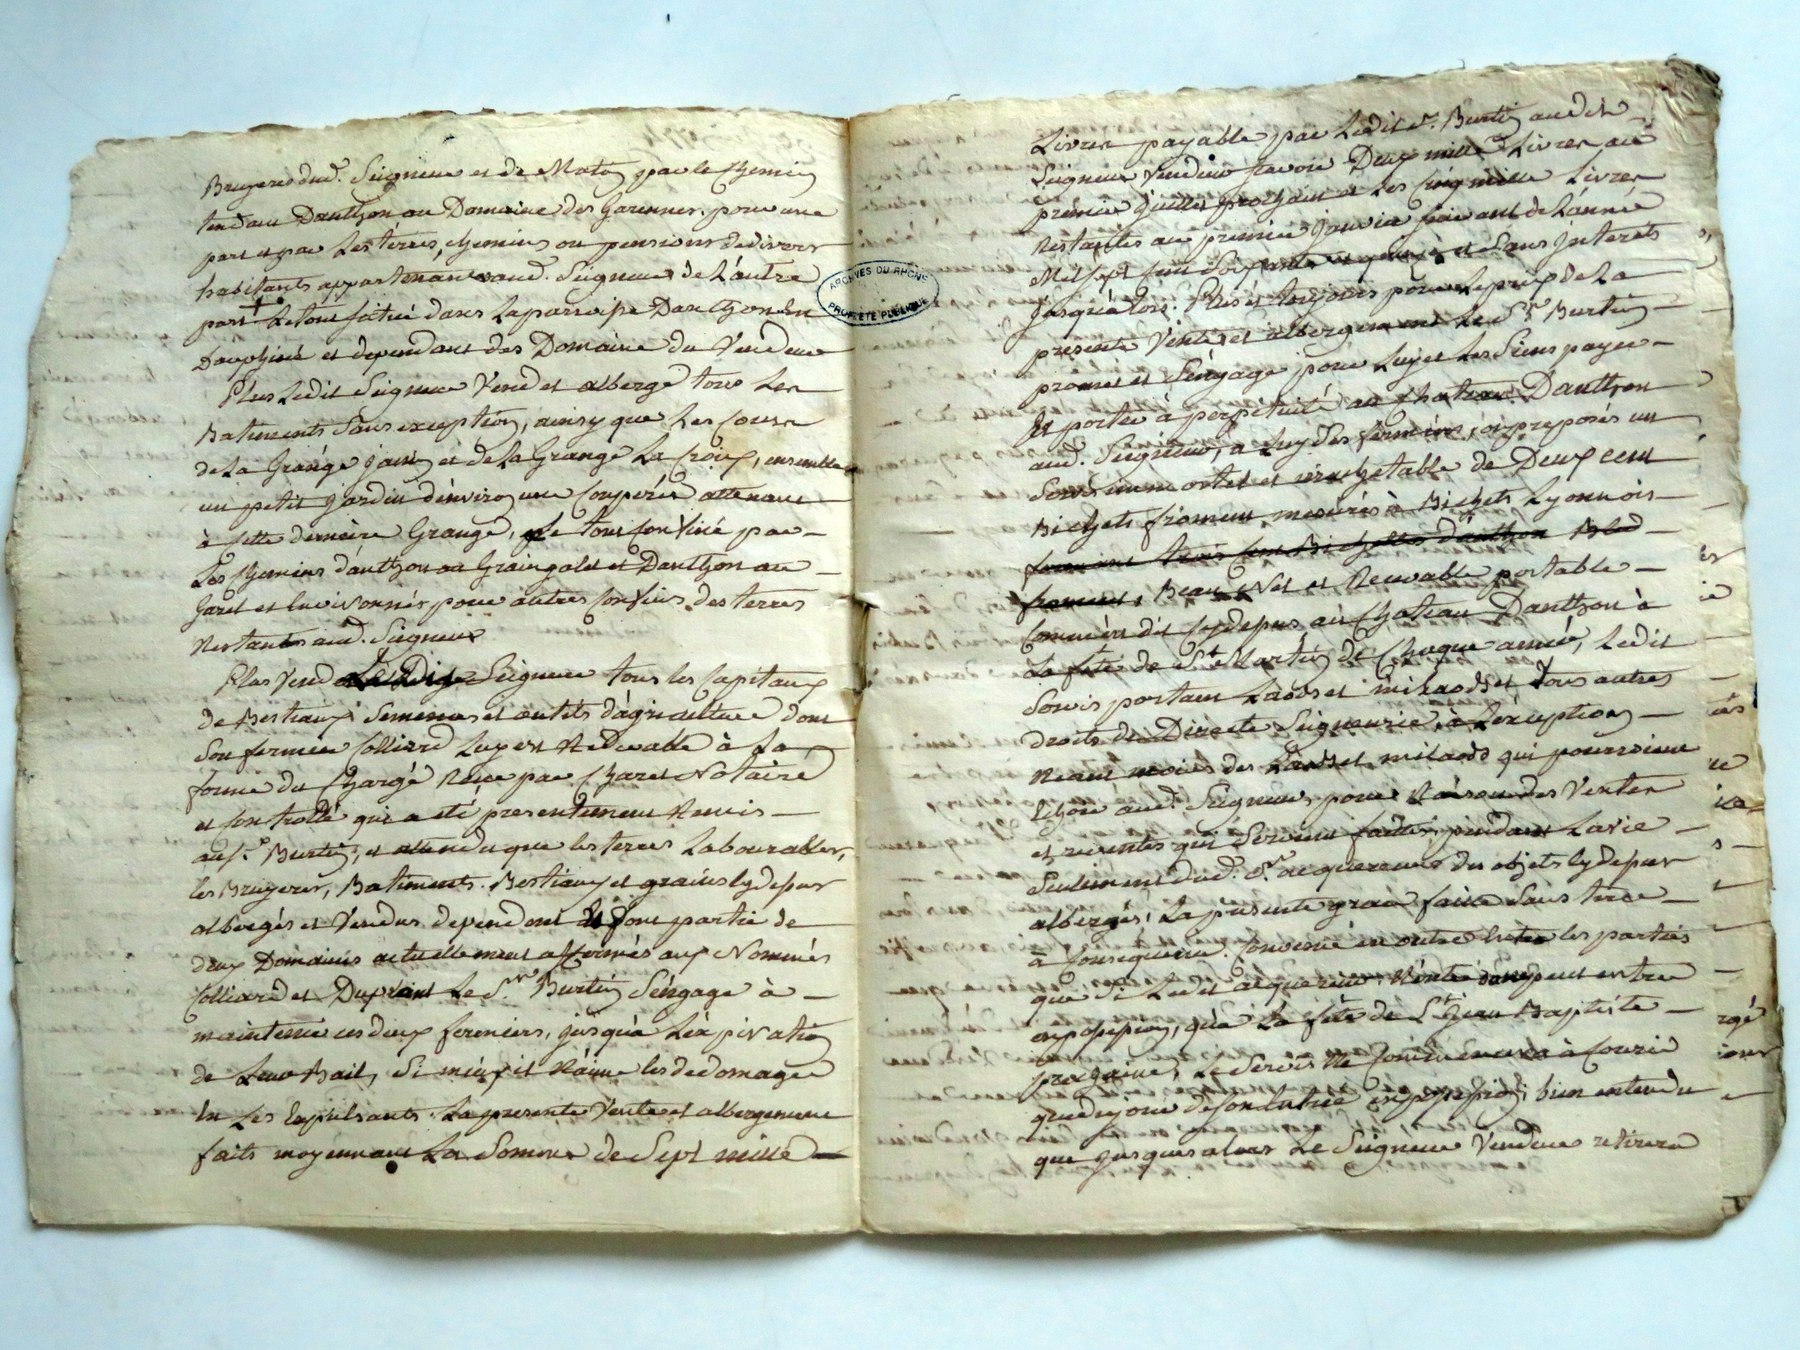 Bruyeres dud. Seigneur et de Maton par le chemin
tendant Danthon au Domaine des Garennes, pour une
part et par Les térres, chemins ou pensions de divers
habitants appartenants aud. Seigneur de L'autre
part Le tout situé dans La parroisse Danthon En
Dauphiné et dependant des Domaine du Vendeur
Plus Ledit Seigneur Vend et alberge tous Les
Batiments Sans exception, ainsy que Les Cours
de La Grange janin et de La Grange La Croix, ensemble
un petit jardin d'environ une Couperée attenant
à cette derniére Grange, Le tout Confiné par
Les chemins d'anthon au et Danthon au
et pour autres Confins des terres
Restantes aud. Seigneur
Plus Vend Le Dit Seigneur tous les Capitaux
de Bestiaux Semences et outils d'agriculture dont
Son fermier Colliard Luy est Redevable à la
forme du Chargé Reçu par Charet Notaire
et Controllé qui a eté presentement Remis
au S.r Burtin, et attendu que les terres Labourables,
les Bruyeres, Batiments. Bestiaux et grains cy depus
albergés et Vendus dependent et font partie de
deux Domaines actuellement affermés aux Nommés
Colliard et Le S.r Burtin S'engage à
maintenir ces deux fermiers, jusqu'à L'éxpiration
de Leur Bail, Si mieux il n'aime les dedomager
En Les Expulsants. La presente Vente et albergement
faits moyennant La Somme de Sept mille
ARCHIVES DU RHONE
PROPRIETE PUBLIQUE
Livres payable par Ledit S.r Burtin audit
Seigneur Vendeur scavoir Deux mille Livres au
premier Juillet prochain et Les Cinq mille Livres
Restantes au premier janvier suivant de L'année
Mil sept Cent Soixante et Sans Interets
jusqu'alors. Plus et toujours pour Le prix de La
presente Vente et albergement Le S.r Burtin
promet et S'engage pour Luy et Les Siens payer
et porter à perpétuité au Chateau Danthon
aud. Seigneur, a Luy Ses fermiers, ou preposés un
Servis immortel et irrachetable de Deux cent
Bichets froment mesurés à Bichets Lyonnois
faisant trois Cent Bichettes d'anthon Bled
froment, Beau Net et Recevable portable
Comme est dit Cy depus au Chateau Danthon à
La fête de S.t Martin de Chaque année, Ledit
Servis portant Laods et milaods et tous autres
droits de Directe Seigneurie, a L'exception
Neant moins des Laods et milaods qui pourroient
Echoir aud. Seigneur pour Raison des Ventes
et reventes qui Seroient faites pendant La vie
Seulement dud. S.r acquereur des objets cy depus
albergés, La presente grace faite Sans tirer
à Consequence. Convenu en outre Entre les parties
que Si Ledit acquereur N'entre dans peut entrer
en possession, qu'à La fête de S.t Jean Baptiste
prochaine, Le Servis Ne Commencera à Courir
que du jour de son Entrée en possession, bien entendu
que jusques alors Le Seigneur Vendeur retirera